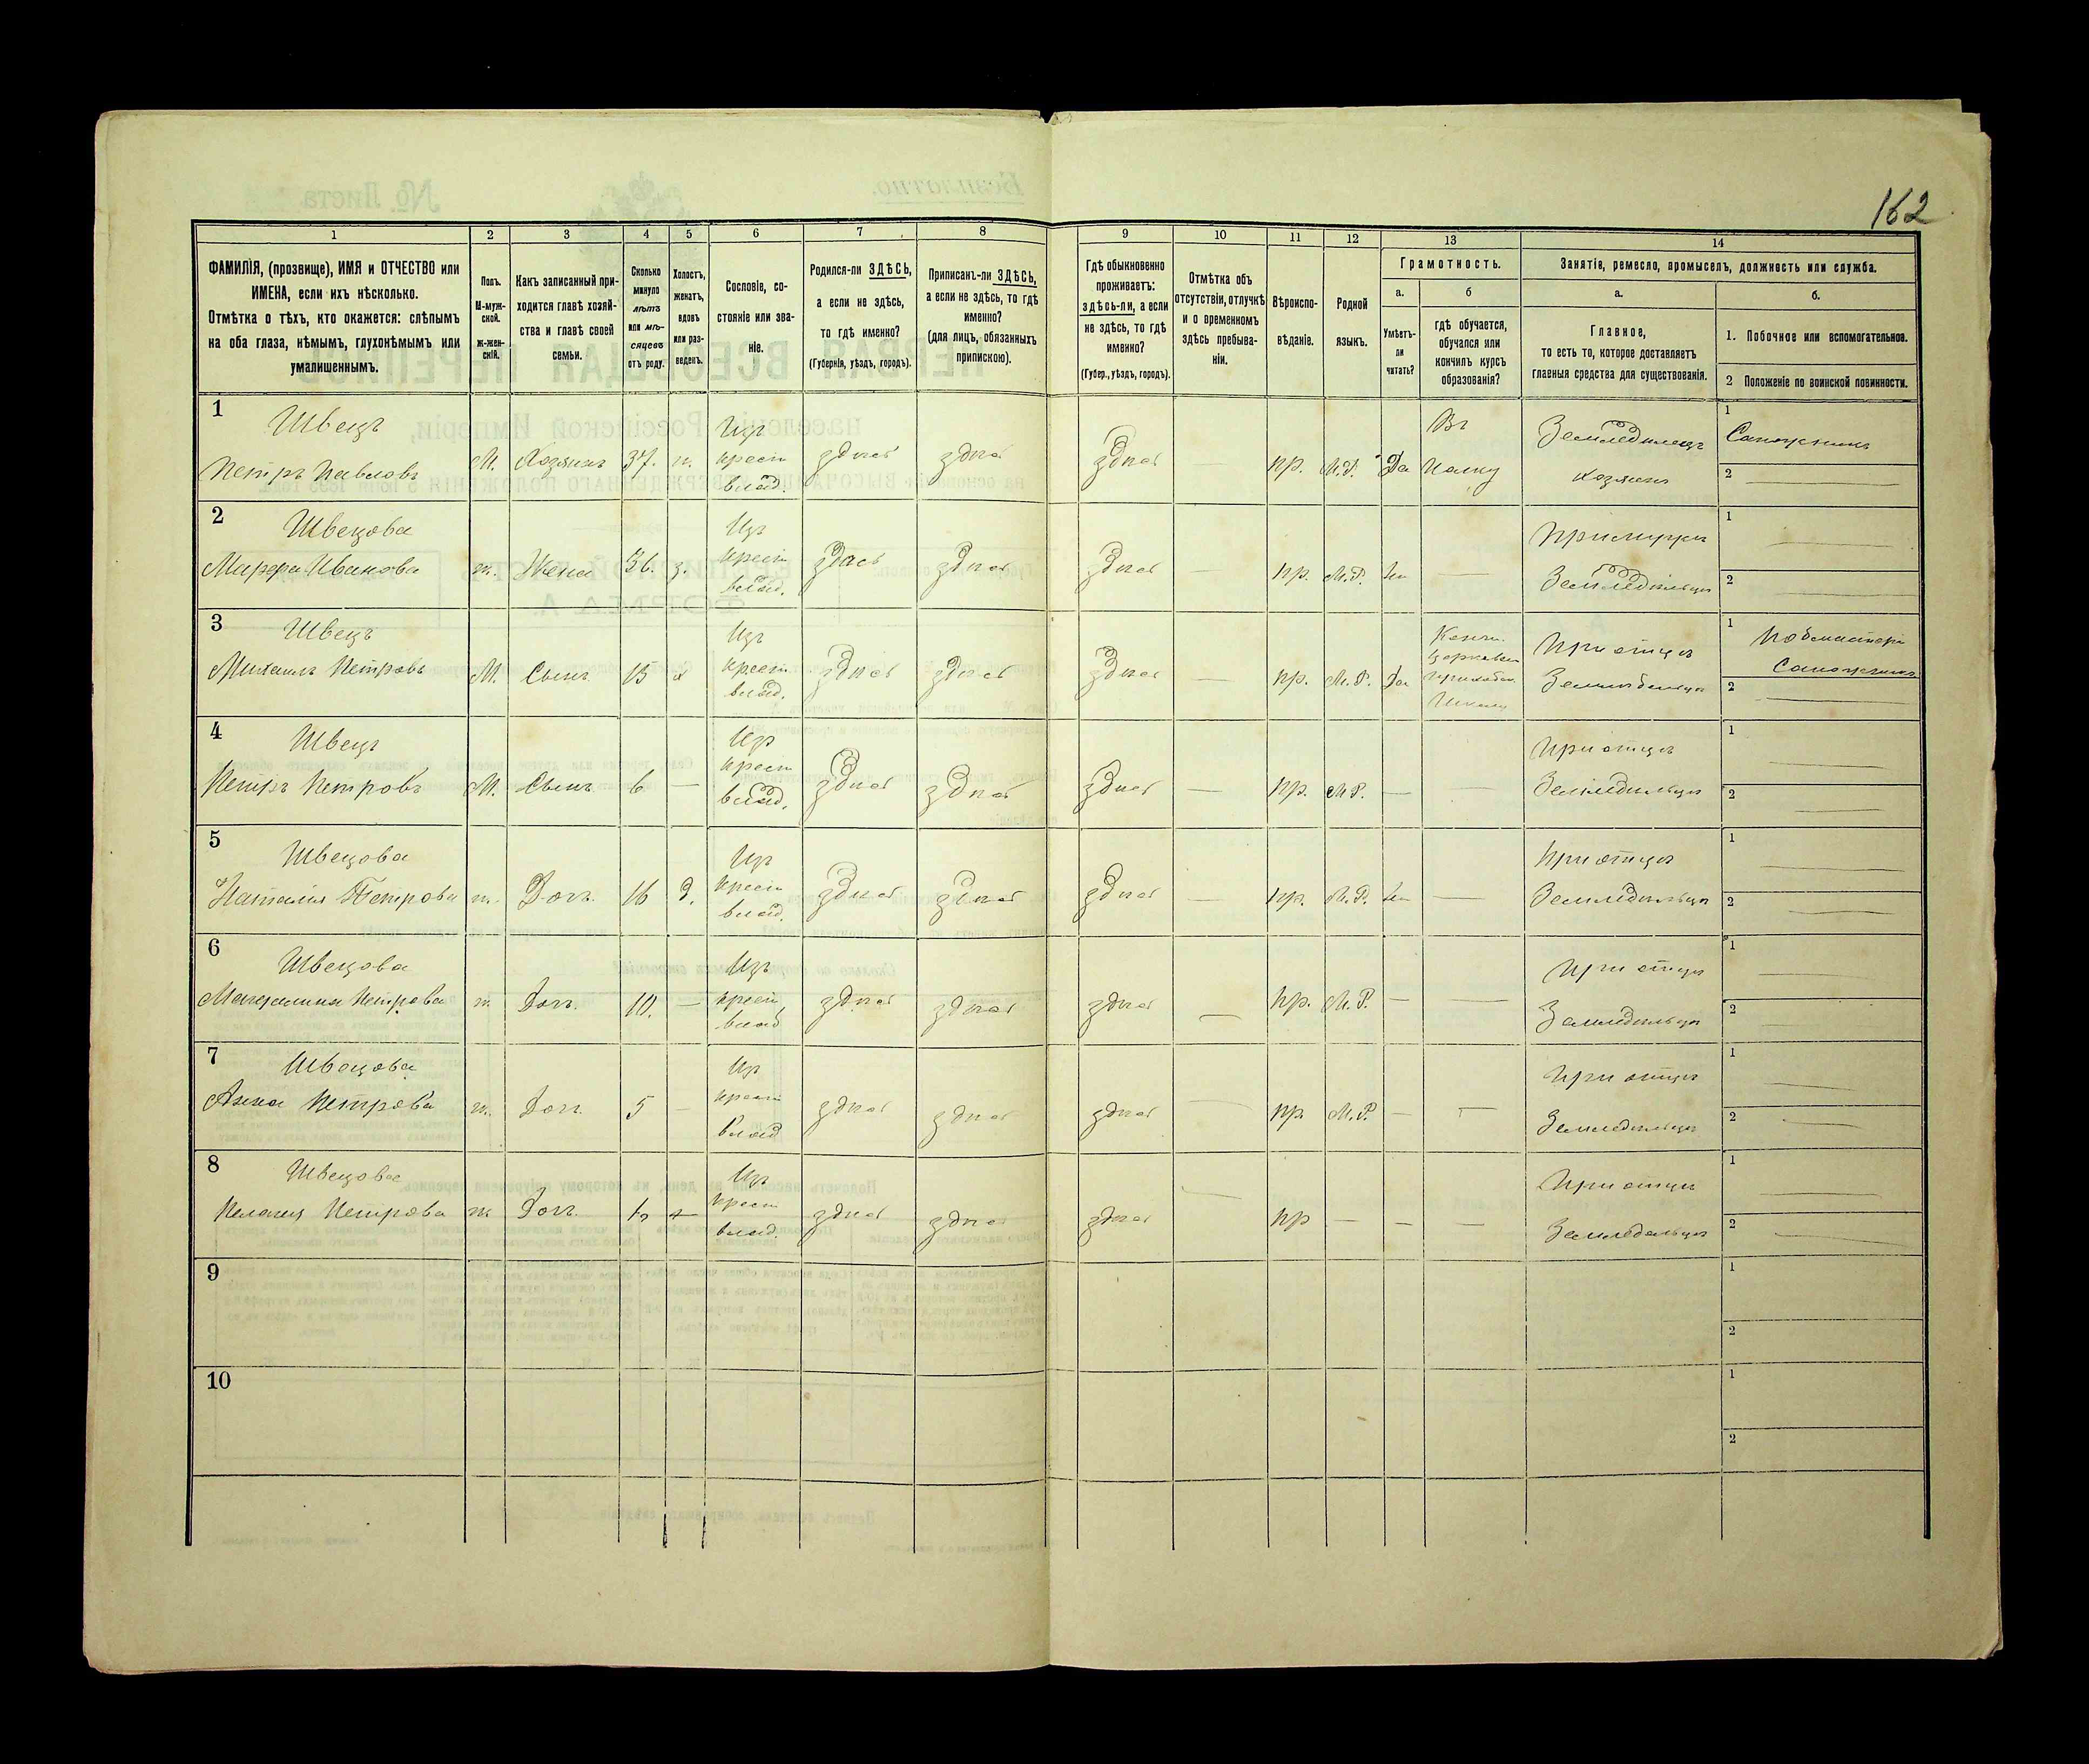 162
1 2 3 4 5 6 7 8 9 10 11 12 13 14
ФАМИЛІЯ, (прозвище), ИМЯ и ОТЧЕСТВО или
ИМЕНА, если ихъ нѣсколько.
Отмѣтка о тѣхъ, кто окажется: слѣпымъ
на оба глаза, нѣмымъ, глухонѣмымъ или
умалишеннымъ.
Полъ.
М-муж-
ской.
Ж-жен-
скій.
Какъ записанный при-
ходится главѣ хозяй-
ства и главѣ своей
семьи.
Сколько
минуло
лѣтъ
или мѣ-
сяцевъ
отъ роду.
Холостъ,
женатъ,
вдовъ
или раз-
веденъ.
Сословіе, со-
стояніе или зва-
ніе.
Родился-ли ЗДѢСЬ,
а если не здѣсь,
то гдѣ именно?
(Губернія, уѣздъ, городъ).
Приписанъ-ли ЗДѢСЬ,
а если не здѣсь, то гдѣ
именно?
(для лицъ, обязанныхъ
припискою).
Гдѣ обыкновенно
проживаетъ:
здѣсь-ли, а если
не здѣсь, то гдѣ
именно?
(Губер., уѣздъ, городъ).
Отмѣтка объ
отсутствіи, отлучкѣ
и о временномъ
здѣсь пребыва-
ніи.
Вѣроиспо-
вѣданіе.
Родной
языкъ.
Грамотность.
а.
Умѣетъ-
ли
читать?
б
гдѣ обучается,
обучался или
кончилъ курсъ
образованія?
Занятіе, ремесло, промыселъ, должность или служба.
а.
Главное,
то есть то, которое доставляетъ
главныя средства для существованія.
б.
1. Побочное или вспомогательное.
2 Положеніе по воинской повинности.
1 Швецъ
Петръ Павловъ М. Хозяинъ 37. Изъ крест. влад. здѣсь здѣсь здѣсь — пр. М.Р. Да Въ Полку Земледѣлецъ хозяинъ
1 Сапожникъ
2 —
2 Швецова
Марфа Иванова ж. Жена 36. з. Изъ крест. влад. здѣсь здѣсь здѣсь — пр. М.Р. — При мужѣ Земледѣльцѣ
1 —
2 —
3 Швецъ
Михаилъ Петровъ М. Сынъ 15 х Изъ крест. влад. здѣсь здѣсь здѣсь — пр. М.Р. Да При отцѣ Земледѣльцѣ
1 Подмастеръ Сапожника
2 —
4 Швецъ
Петръ Петровъ М. Сынъ 6 — Изъ крест. влад. здѣсь здѣсь здѣсь — пр. М.Р. — — При отцѣ Земледѣльцѣ
1
2 —
5 Швецова
Наталія Петрова ж. Дочь 16 д. Изъ крест. влад. здѣсь здѣсь здѣсь — пр. М.Р. — При отцѣ Земледѣльцѣ
1 —
2 —
6 Швецова
Петрова ж Дочь. 10. — Изъ крест. влад здѣсь здѣсь здѣсь — пр. М.Р. — — При отцѣ Земледѣльцѣ
1 —
2 —
7 Швецова
Анна Петрова ж. Дочь 5 — Изъ крест. влад здѣсь здѣсь здѣсь — пр М.Р. — — При отцѣ Земледѣльцѣ
1 —
2 —
8 Швецова
Петрова ж Дочь. Изъ крест влад. здѣсь здѣсь здѣсь — пр — — — При отцѣ Земледѣльцѣ
1 —
2 —
9
1
2
10
1
2